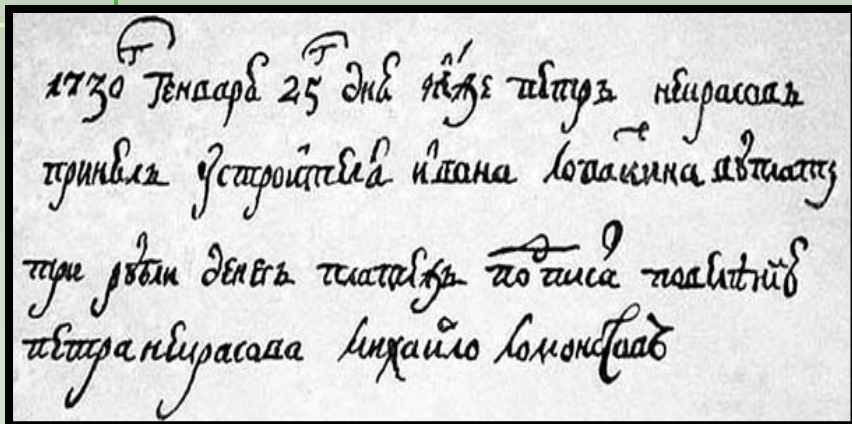 1730 г Генваря 25 г дня я же петръ некрасовъ
принелъ у строителя ивана лопаткина в уплату
три рубли денегъ платежъ подписа повелению
петра некрасова михайло ломоносовъ